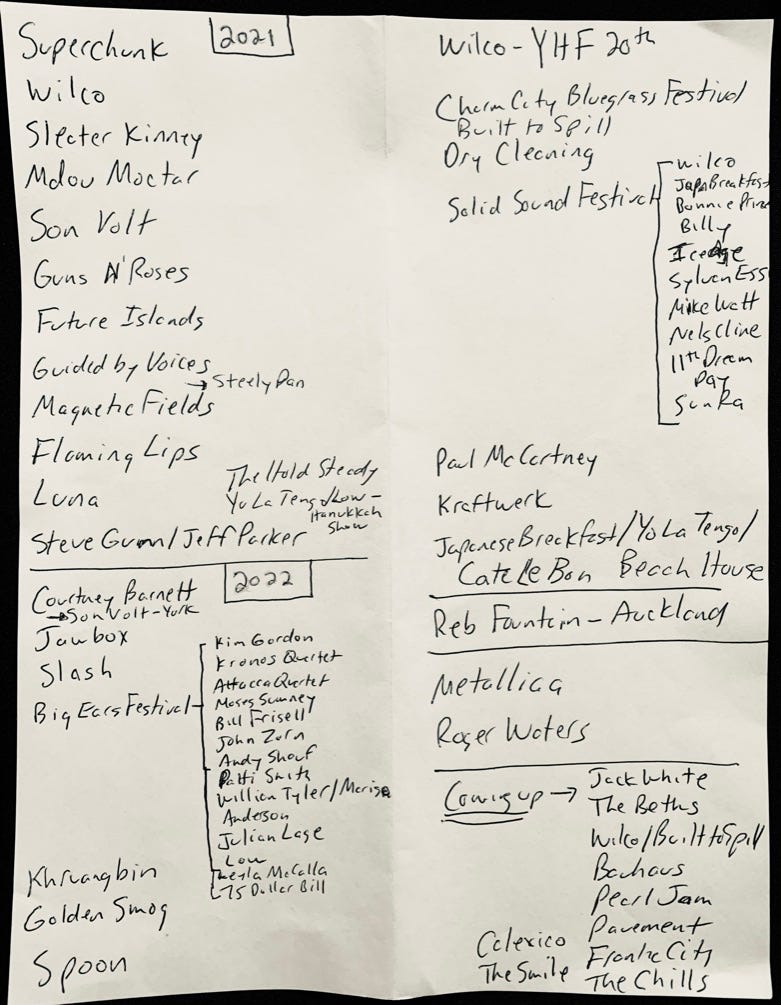 2021
Superchunk
Wilco
Sleater Kinney
Mdou Moctar
Son Volt
Guns N' Roses
Future Islands
Guided by Voices
→ Steely Dan
Magnetic Fields
Flaming Lips
Luna
The Hold Steady
Yo La Tengo/Low -
Hanukkah
Show
Steve Gunn/Jeff Parker
2022
Courtney Barnett
→ Son Volt - York
Jawbox
Slash
Big Ears Festival -
Kim Gordon
Kronos Quartet
Attacca Quartet
Moses Sumney
Bill Frisell
John Zorn
Andy Shauf
Patti Smith
William Tyler/Marisa
Anderson
Julian Lage
Low
Leyla McCalla
75 Dollar Bill
Khruangbin
Golden Smog
Spoon
Wilco - YHF 20th
Charm City Bluegrass Festival
Built to Spill
Dry Cleaning
Solid Sound Festival
Wilco
Japn Breakfast
Bonnie Prince
Billy
Iceage
Sylvan Ess
Mike Watt
Nels Cline
11th Dream
Day
Sun Ra
Paul McCartney
Kraftwerk
Japanese Breakfast/Yo La Tengo/
Cate Le Bon Beach House
Reb Fountain - Auckland
Metallica
Roger Waters
Coming up →
Jack White
The Beths
Wilco/Built to Spill
Bauhaus
Pearl Jam
Pavement
Calexico
Franke City
The Smile
The Chills